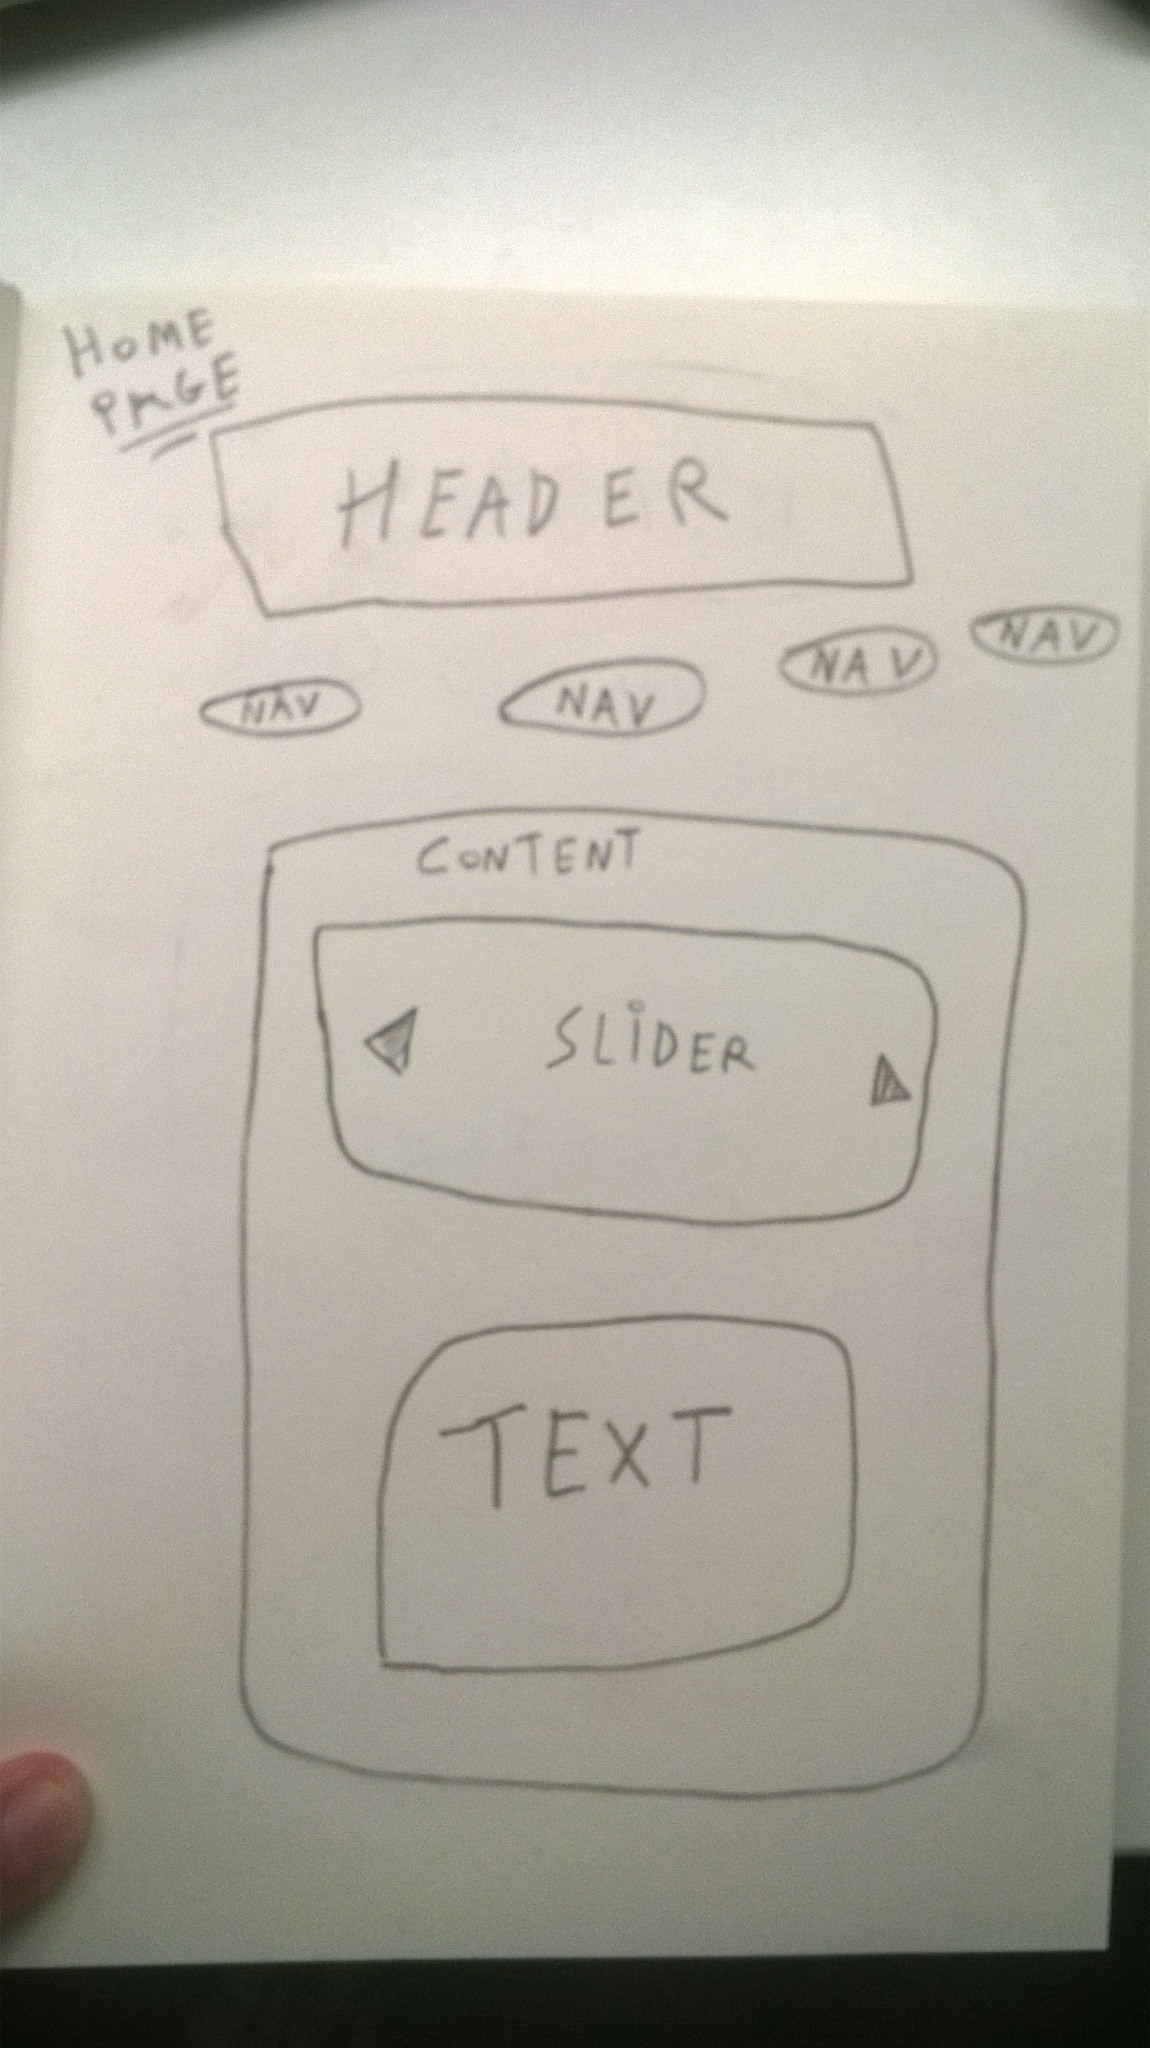 HOME
PAGE
HEADER
NAV NAV NAV NAV
CONTENT
SLiDER
TEXT